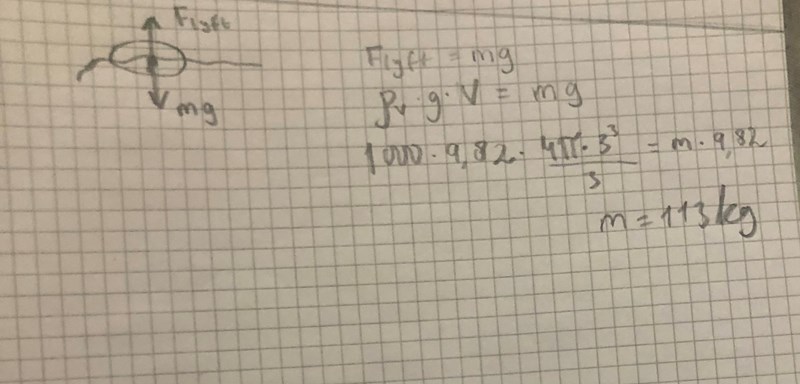 Flyft
mg
Flyft = mg
ρv · g · V = mg
1000 · 9,82 · 4π · 3³ / 3 = m · 9,82
m = 113 kg